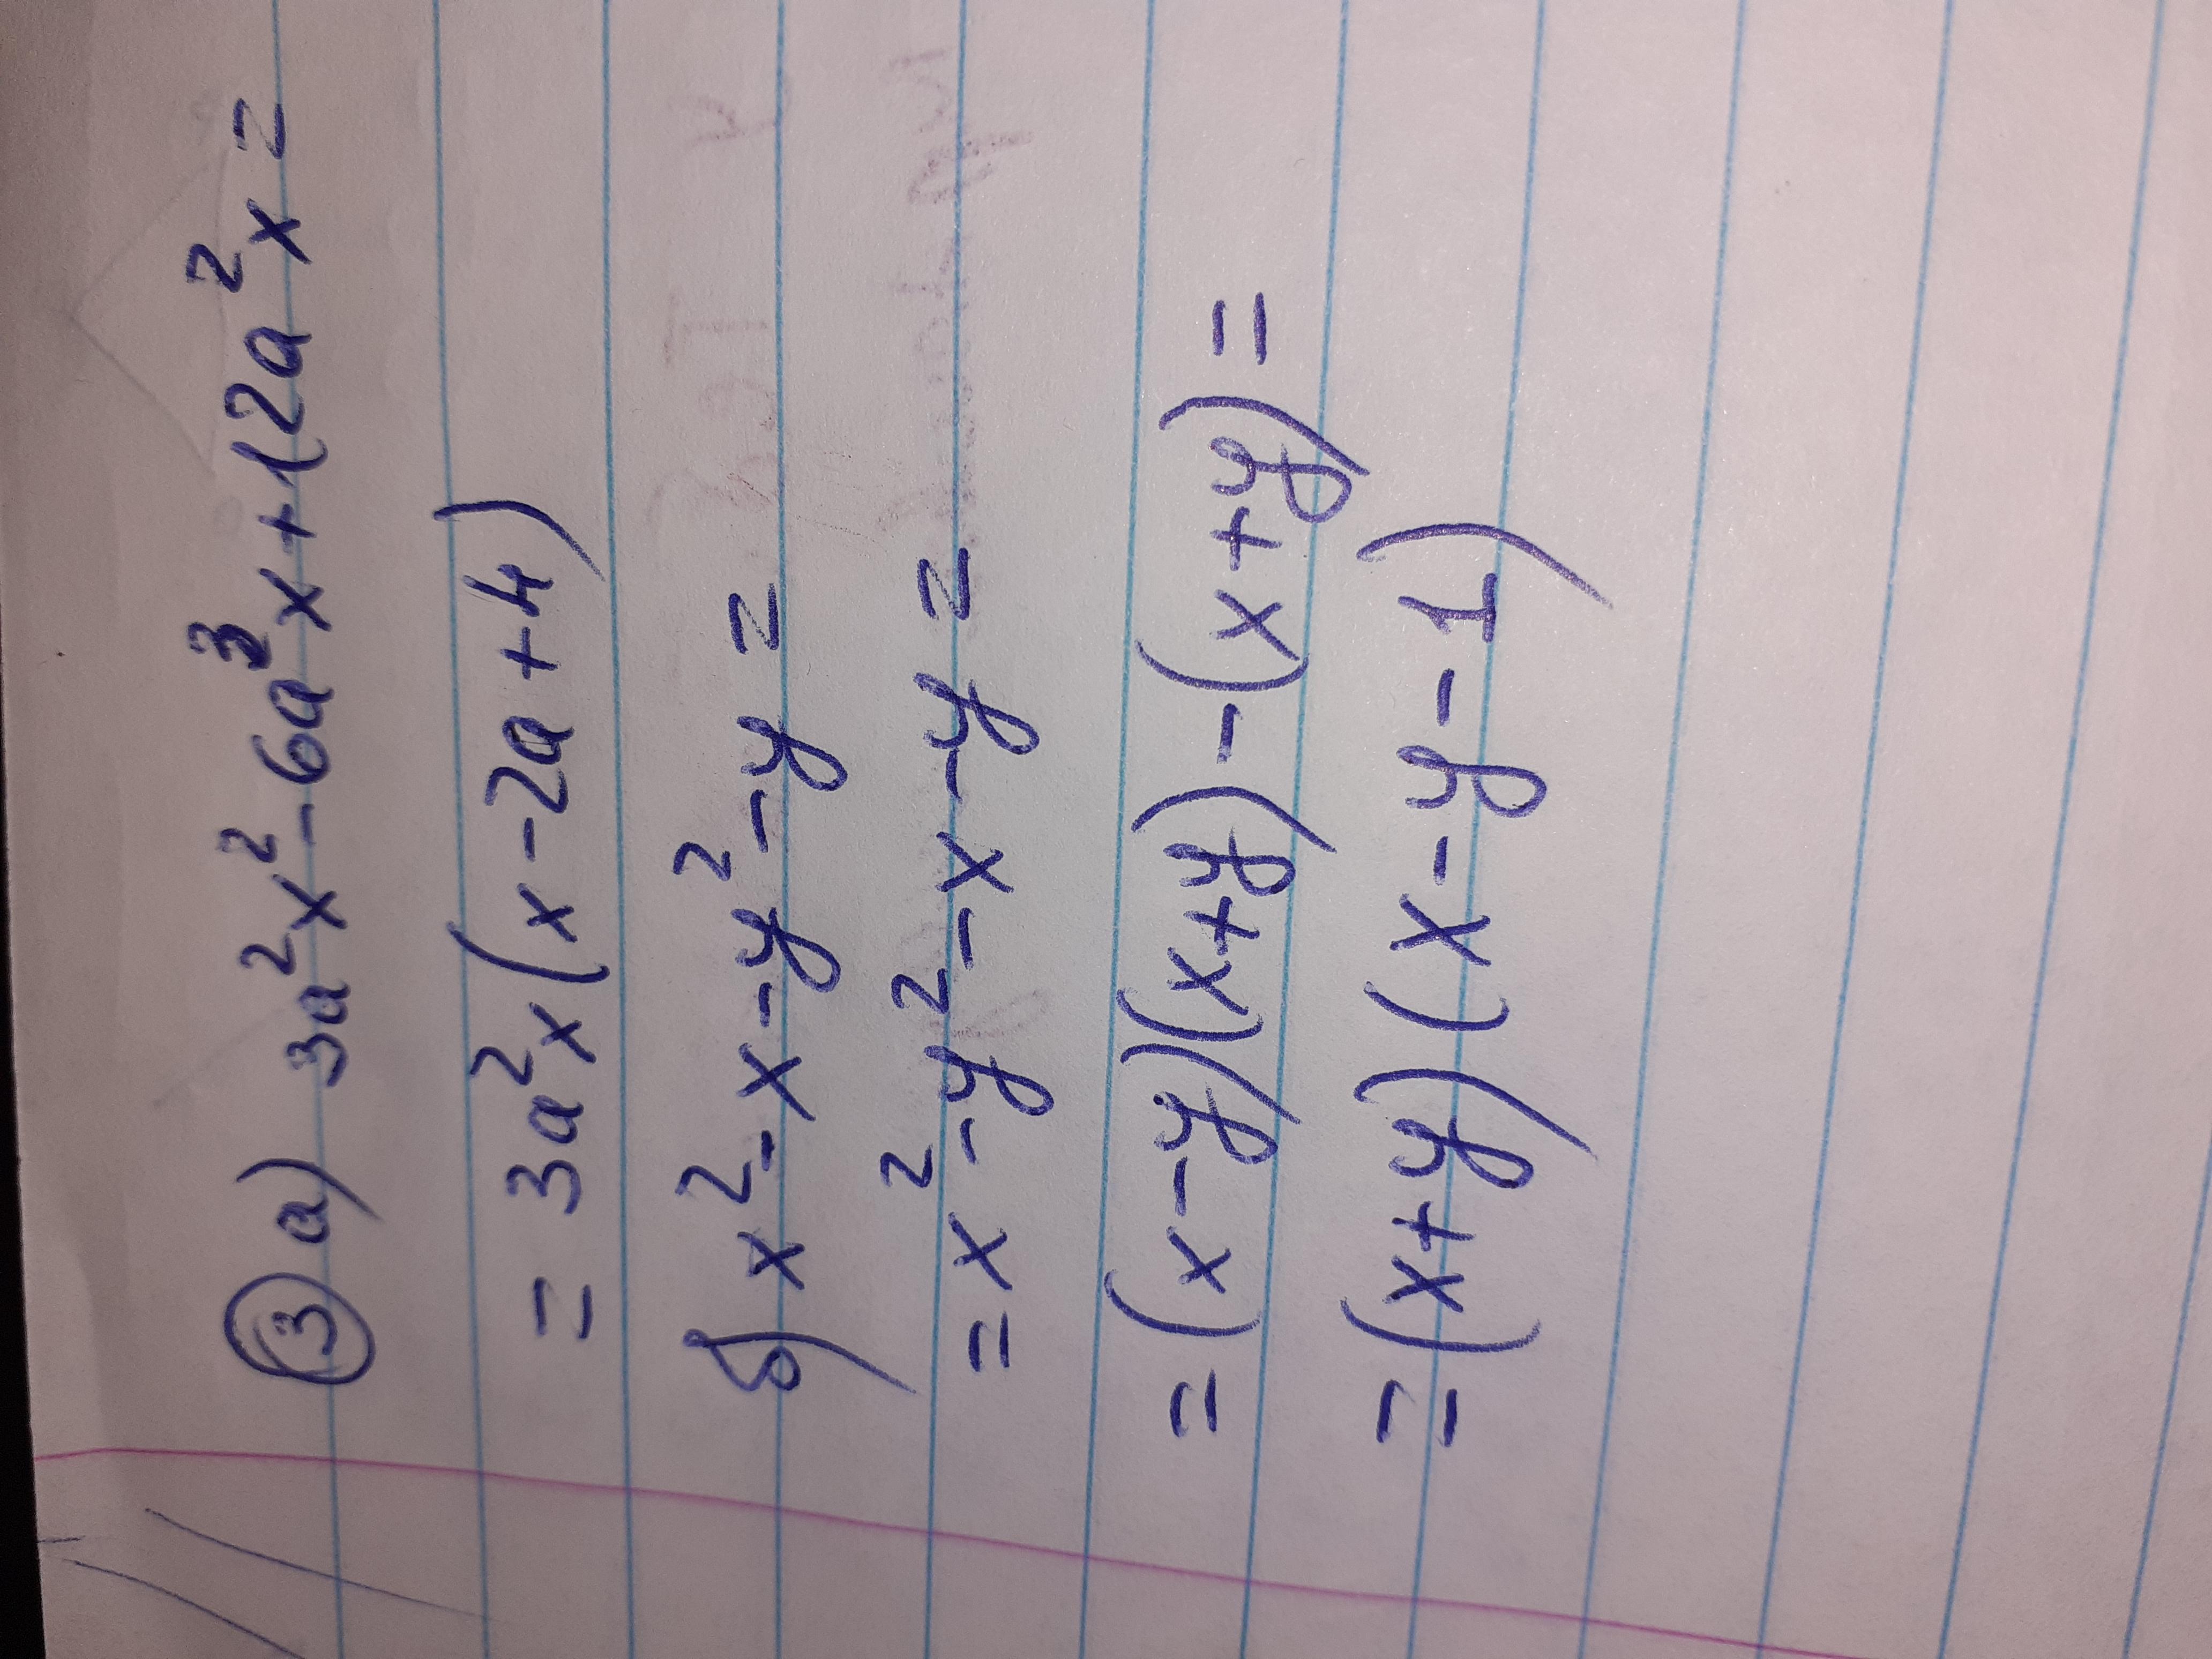 ③ а) 3a²x² - 6a³x + 12a²x =
= 3a²x(x - 2a + 4)
б) x² - x - y² - y =
= x² - y² - x - y =
= (x - y)(x + y) - (x + y) =
= (x + y)(x - y - 1)